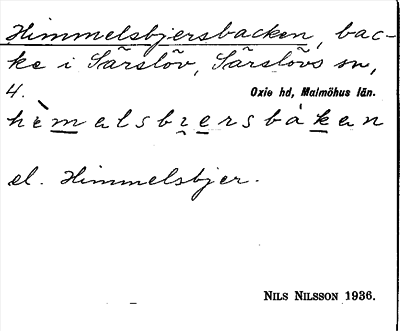 Himmelsbjersbacken, bac-
ke i Särslöv, Särslövs sn,
4. Oxie hd, Malmöhus län.
hèmalsbrersbákan
el. Himmelsbjer.
NILS NILSSON 1936.